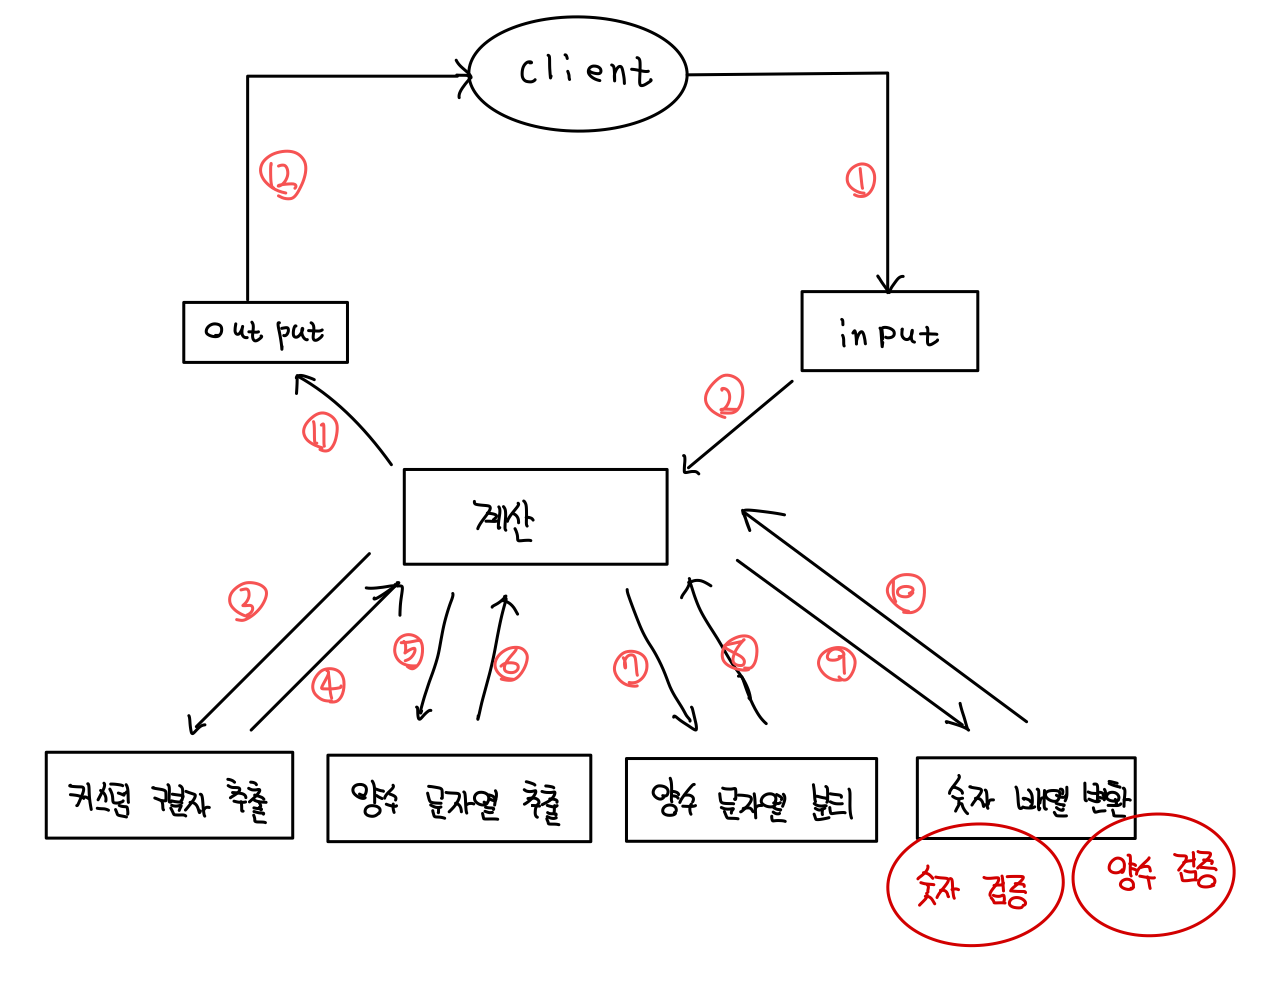 client
⑫
①
output
input
②
⑪
계산
③
④
⑤
⑥
⑦
⑧
⑨
⑩
커스텀 구분자 추출
양수 문자열 추출
양수 문자열 분리
숫자 배열 변환
숫자 검증
양수 검증